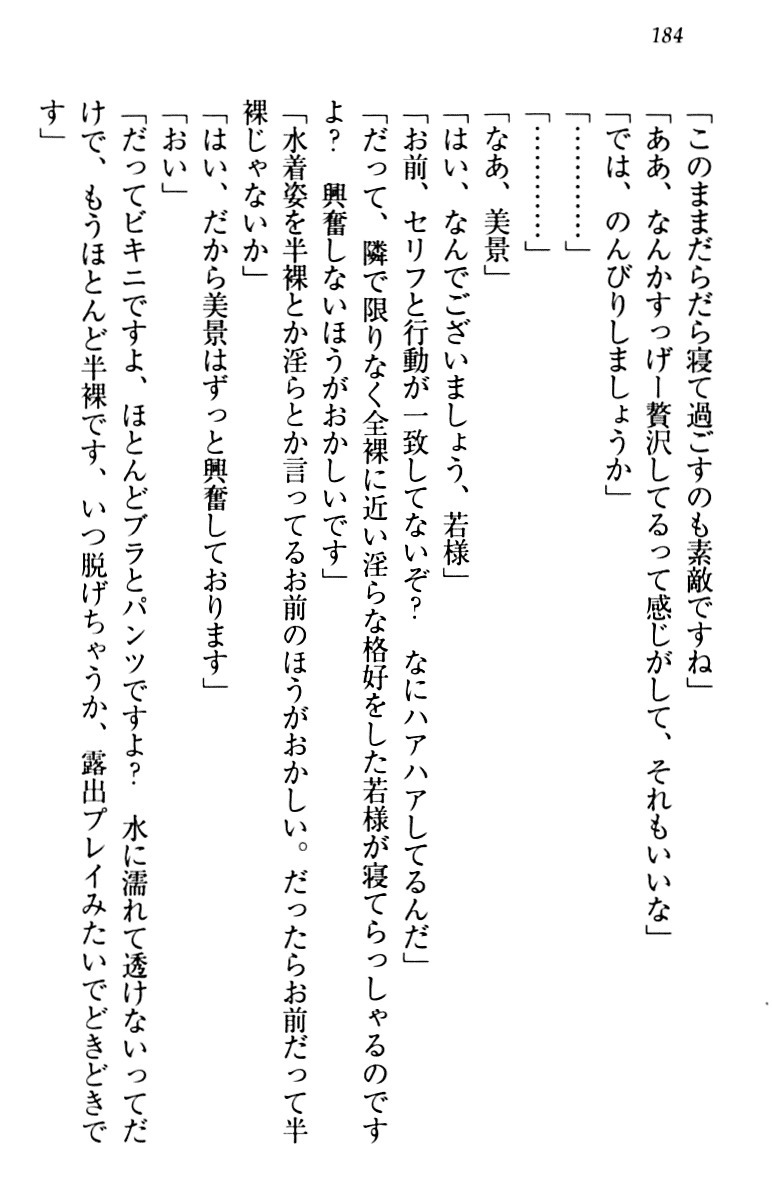 184
「このままだらだら寝て過ごすのも素敵ですね」
「ああ、なんかすっげー贅沢してるって感じがして、それもいいな」
「では、のんびりしましょうか」
「…………」
「…………」
「なあ、美景」
「はい、なんでございましょう、若様」
「お前、セリフと行動が一致してないぞ？　なにハアハアしてるんだ」
「だって、隣で限りなく全裸に近い淫らな格好をした若様が寝てらっしゃるのです
よ？　興奮しないほうがおかしいです」
「水着姿を半裸とか淫らとか言ってるお前のほうがおかしい。だったらお前だって半
裸じゃないか」
「はい、だから美景はずっと興奮しております」
「おい」
「だってビキニですよ、ほとんどブラとパンツですよ？　水に濡れて透けないってだ
けで、もうほとんど半裸です、いつ脱げちゃうか、露出プレイみたいでどきどきで
す」